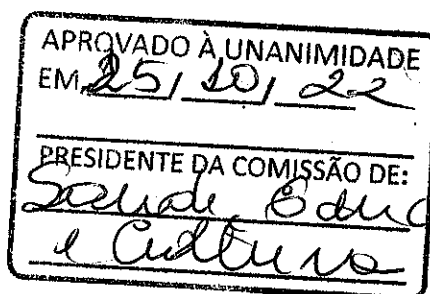 APROVADO À UNANIMIDADE
EM 25/10/22
PRESIDENTE DA COMISSÃO DE:
Saúde, Educ
e Cultura